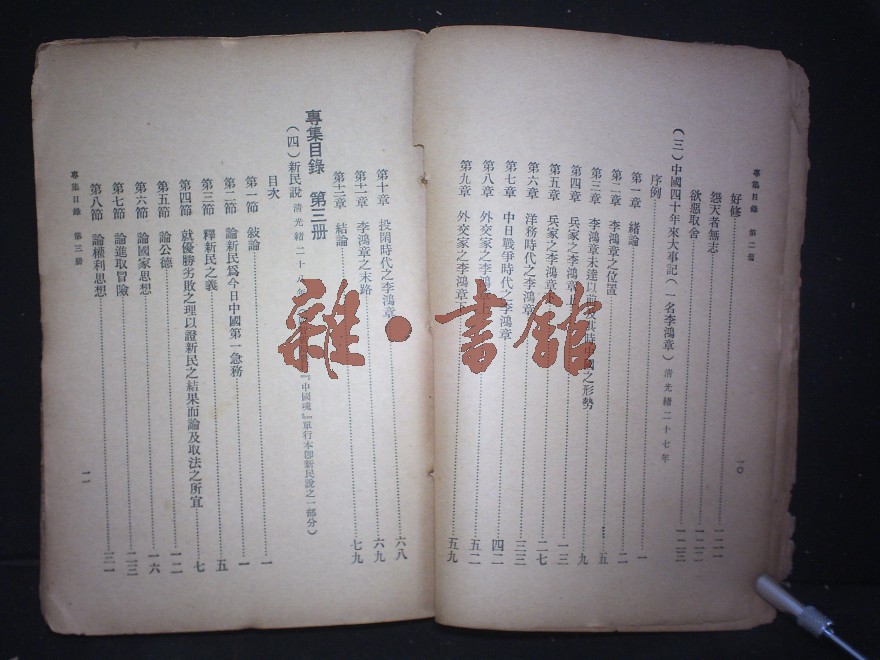 專集目錄 第二册
一〇
好修……一二一
怨天者無志……一二一
欲惡取舍……一二三
(三)中國四十年來大事記(一名李鴻章)清光緒二十七年
序例……一
第一章 緒論……二
第二章 李鴻章之位置……五
第三章 李鴻章未達以前及其時中國之形勢……九
第四章 兵家之李鴻章上……一三
第五章 兵家之李鴻章……二七
第六章 洋務時代之李鴻章……三三
第七章 中日戰爭時代之李鴻章……四二
第八章 外交家之李鴻章上……五二
第九章 外交家之李鴻章……五九
第十章 投閒時代之李鴻章……六八
第十一章 李鴻章之末路……六九
第十二章 結論……七九
專集目錄 第三册
(四)新民說 清光緒二十八年 『中國魂』單行本卽新民說之一部分)
目次……一
第一節 敍論……一
第二節 論新民爲今日中國第一急務……一
第三節 釋新民之義……五
第四節 就優勝劣敗之理以證新民之結果而論及取法之所宜……七
第五節 論公德……一二
第六節 論國家思想……一六
第七節 論進取冒險……二三
第八節 論權利思想……三一
專集目錄 第三册
一一
雜·書館